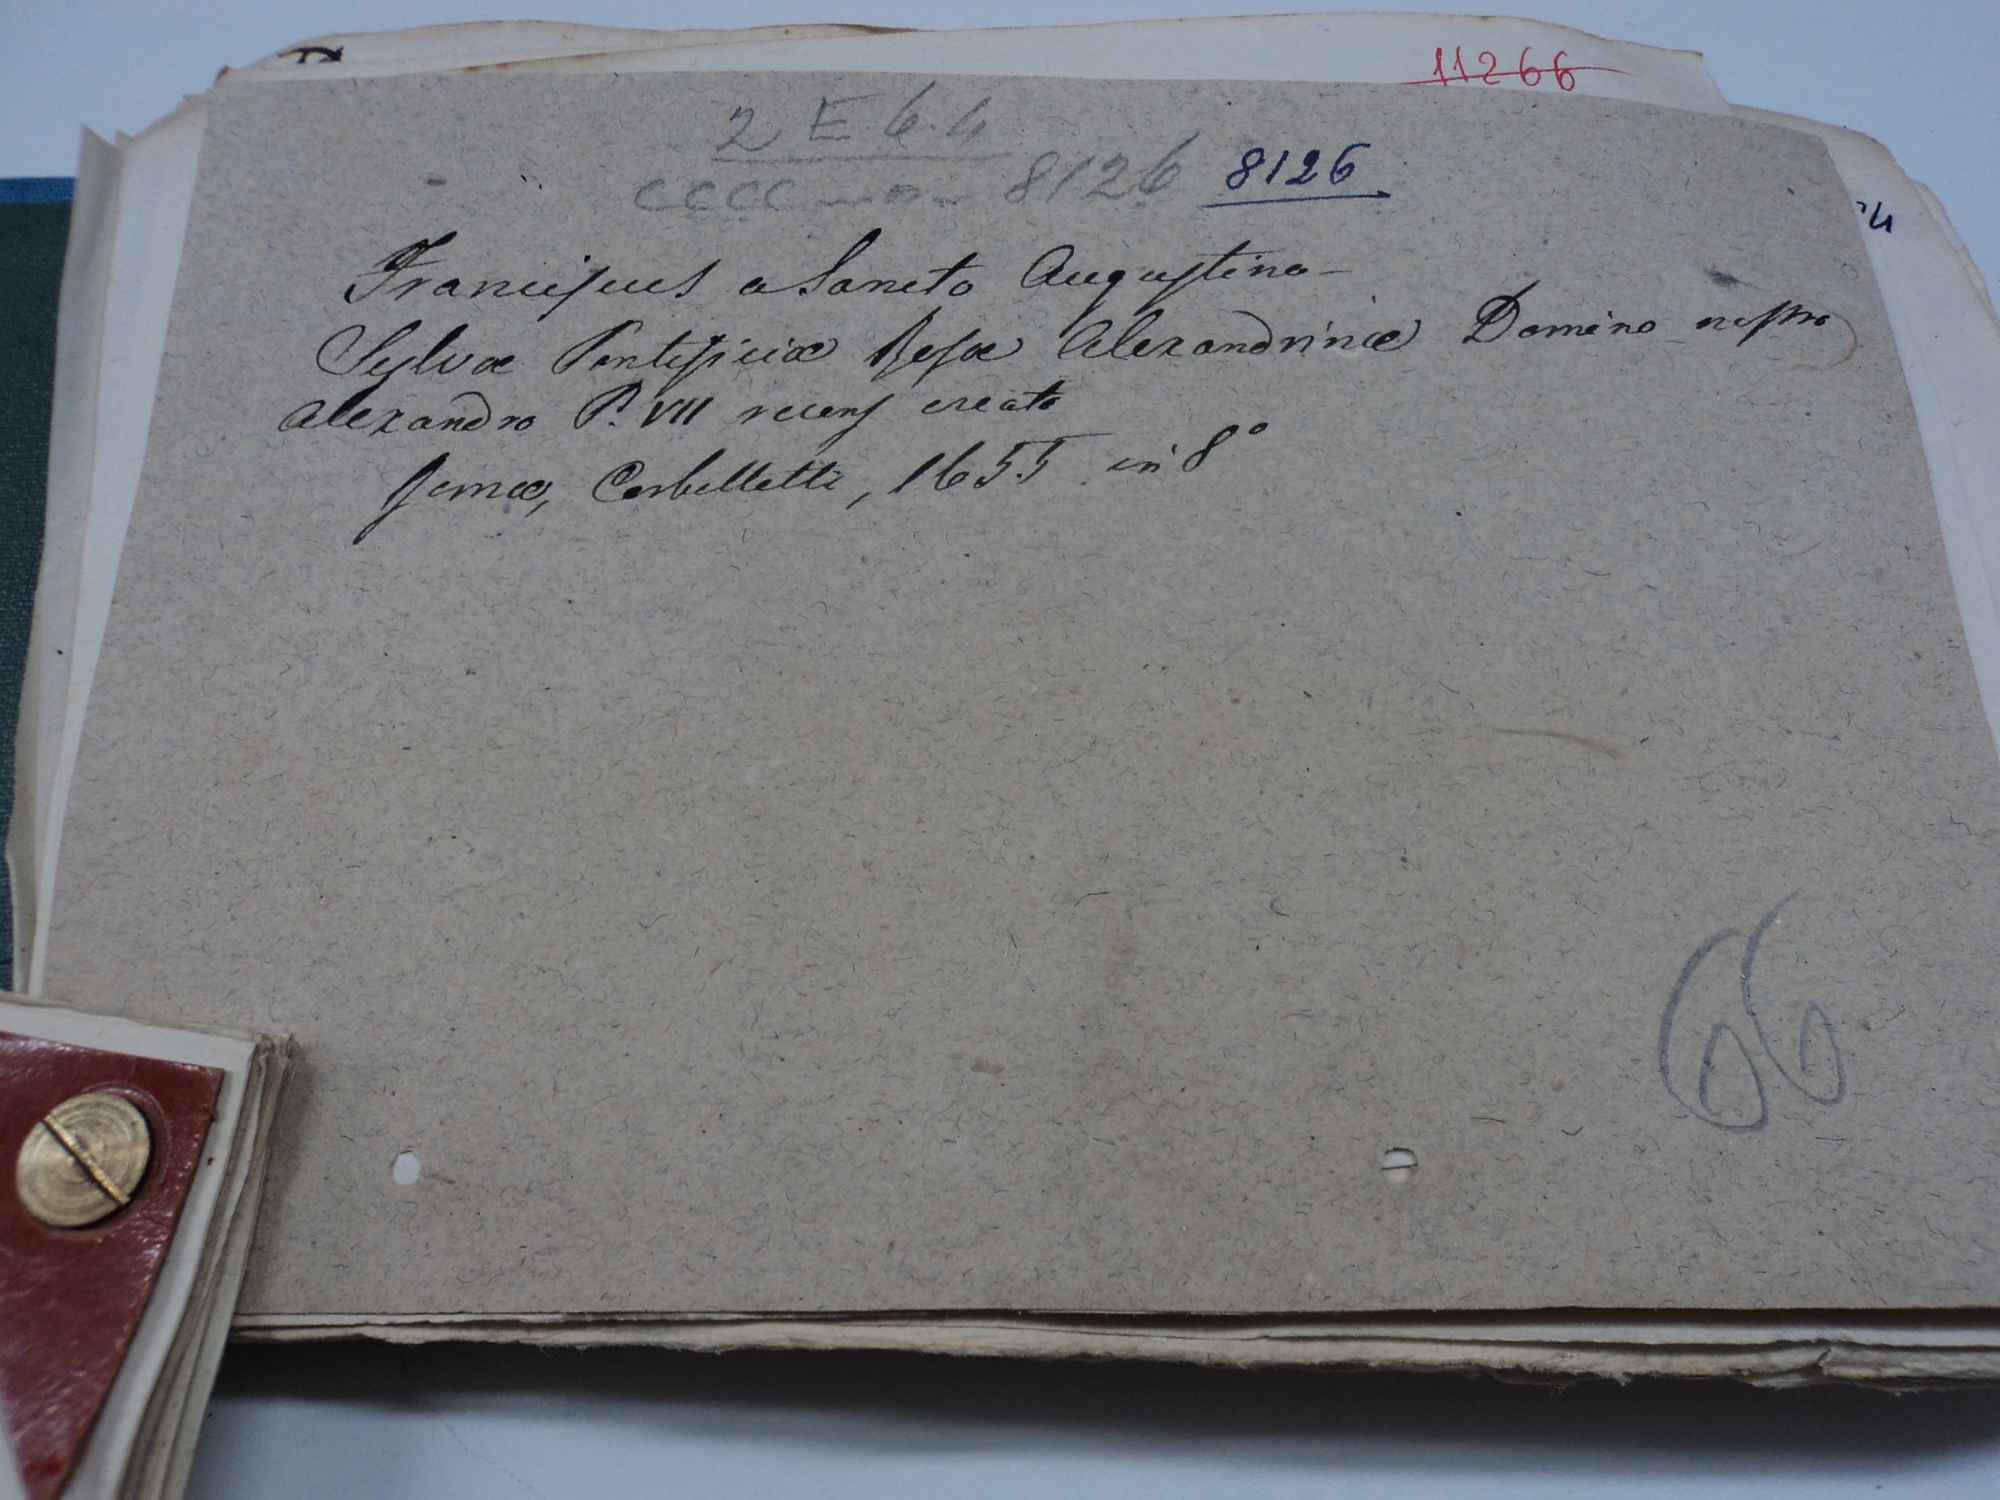 11266
2 E 6.4
8126 8126
Franciscus a Sancto Augustino
Sylvæ Pontificiæ Rosæ Alexandrinæ Domino nostro
Alexandro P. VII recens creato
Romæ, Corbelletti, 1655 in 8°
66